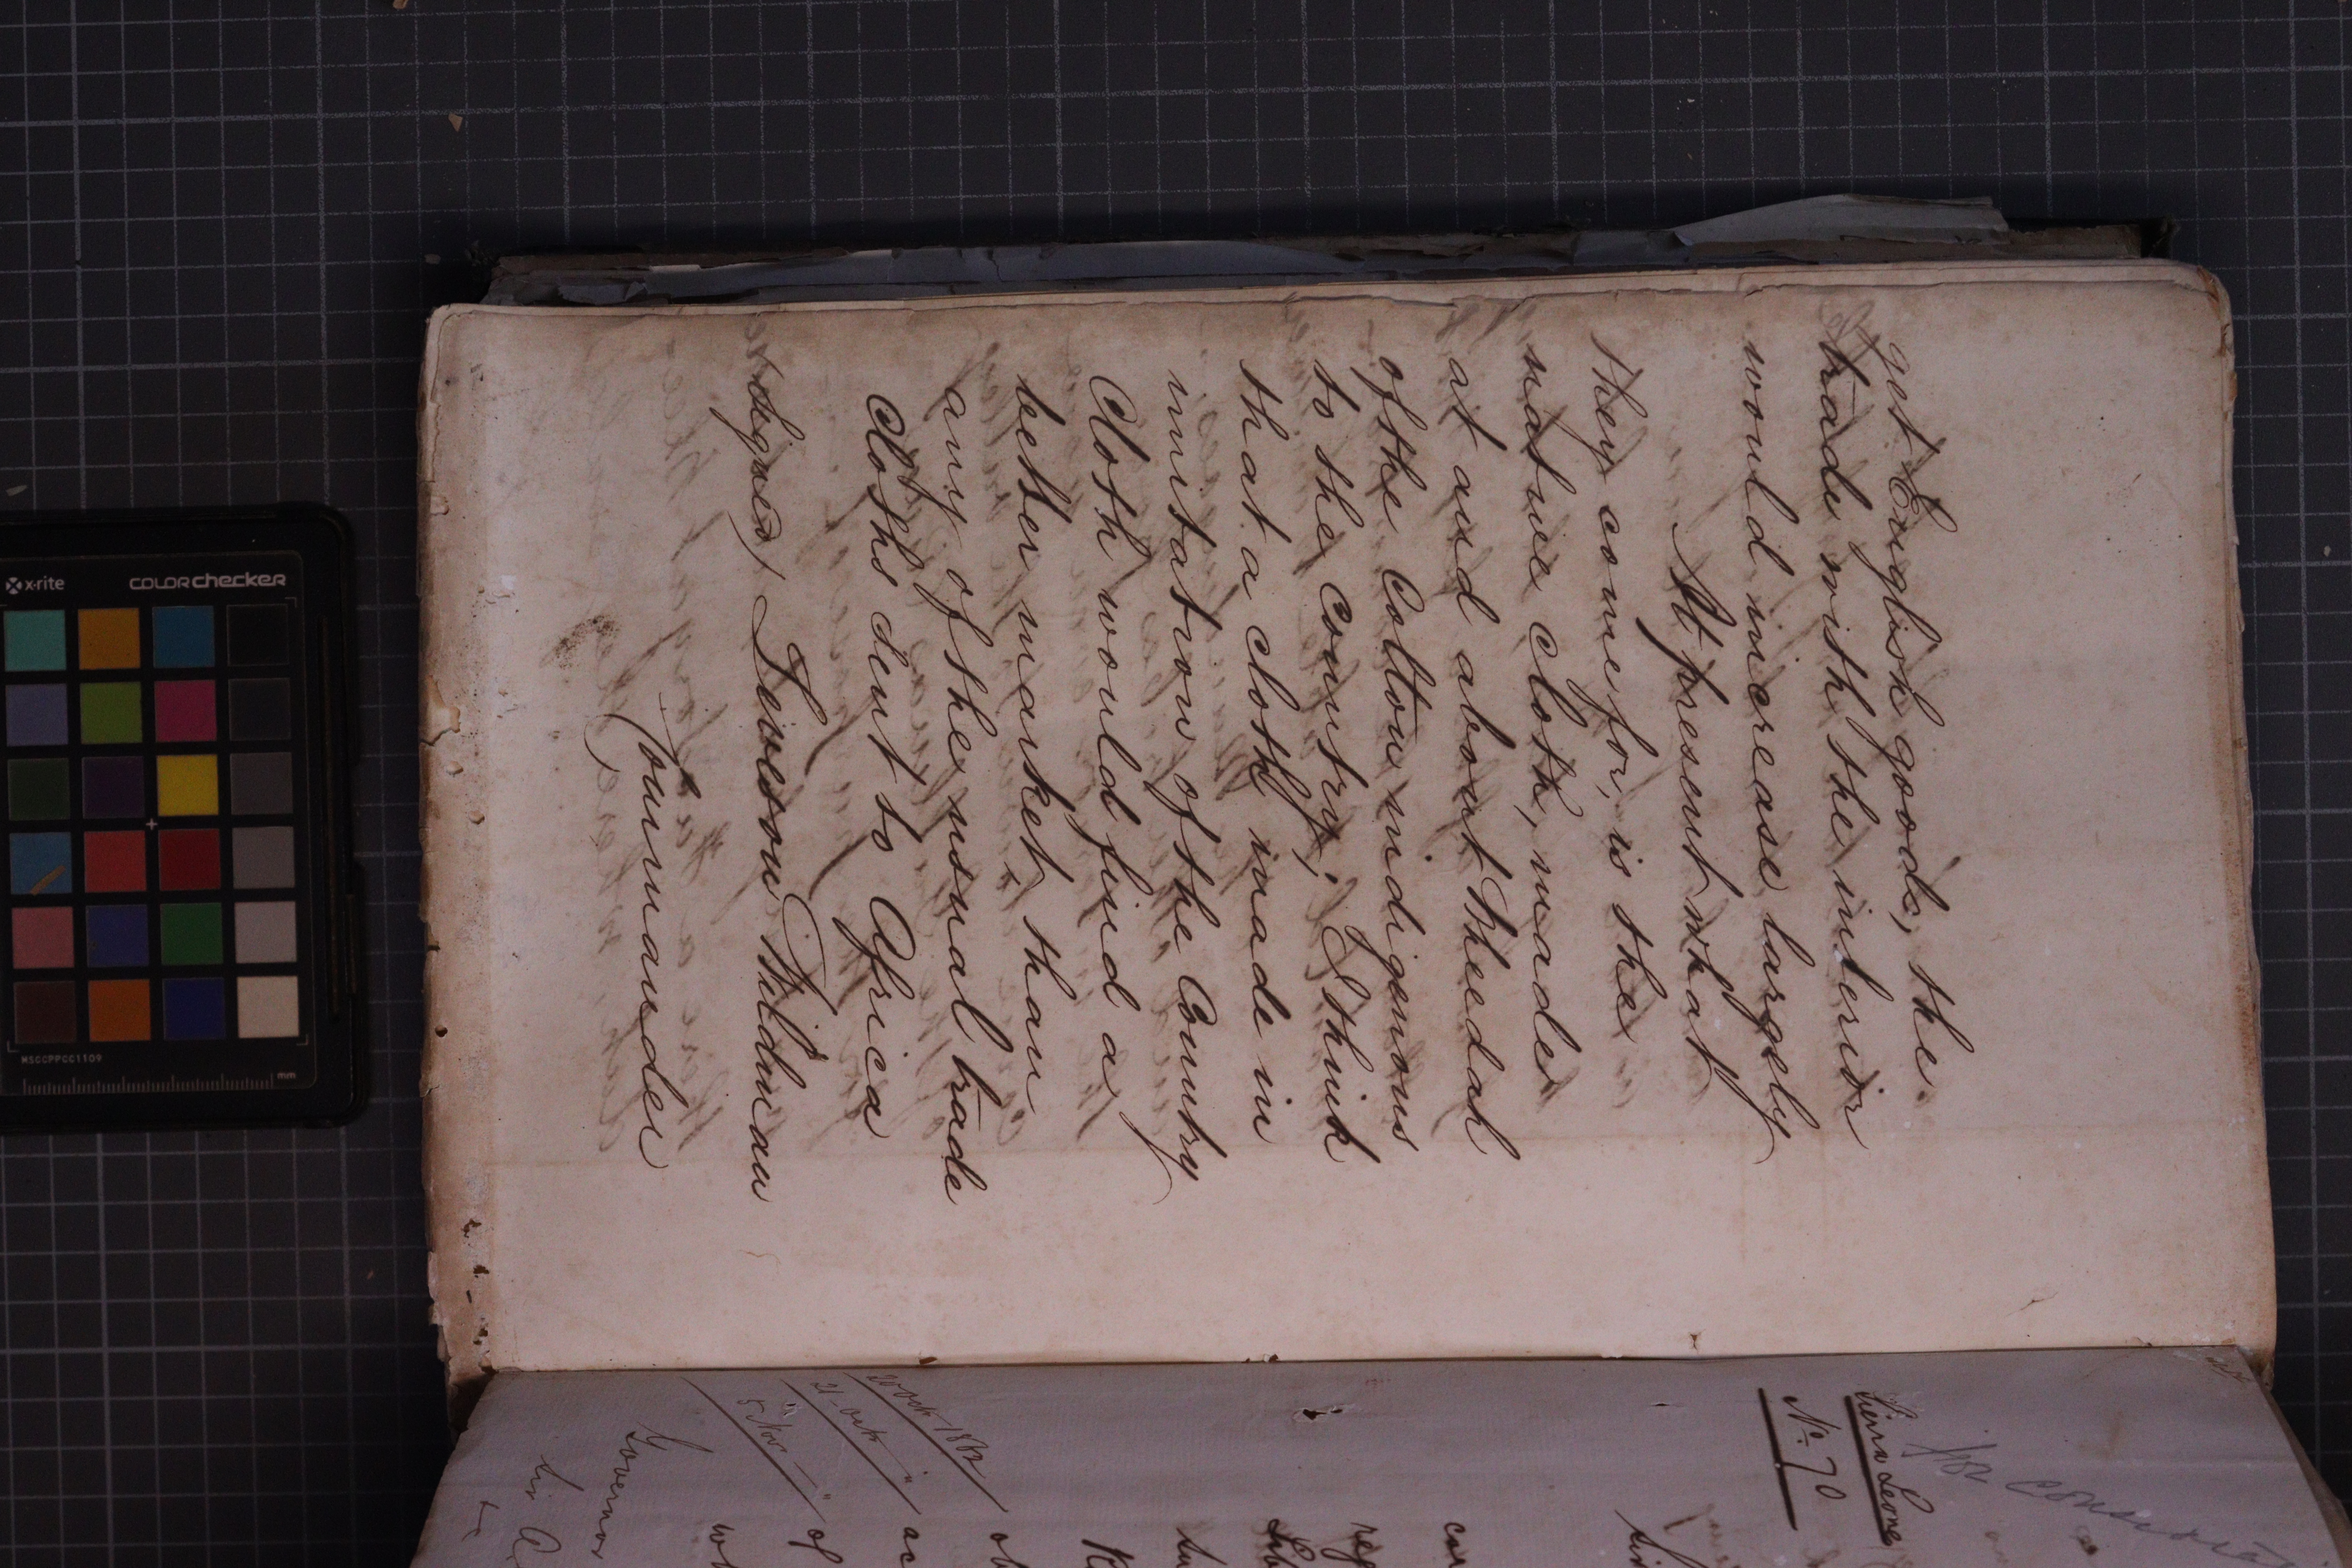 get English goods, the
trade with the interior
would increase largely
At present what
they come for, is the
native cloth, made
at and about Theedah
of the Cotton indigenous
to the Country; I think
that a cloth made in
imitation of the Country
Cloth would find a
better market, than
any of the usual trade
Cloths sent to Africa
(signed) Leveson Wildman
Commander
Sierra Leone
No. 70
20 Octr 1862
21 Octr "
5 Novr "
Governor
x-rite
COLORchecker
MSCCPPCC1109
mm